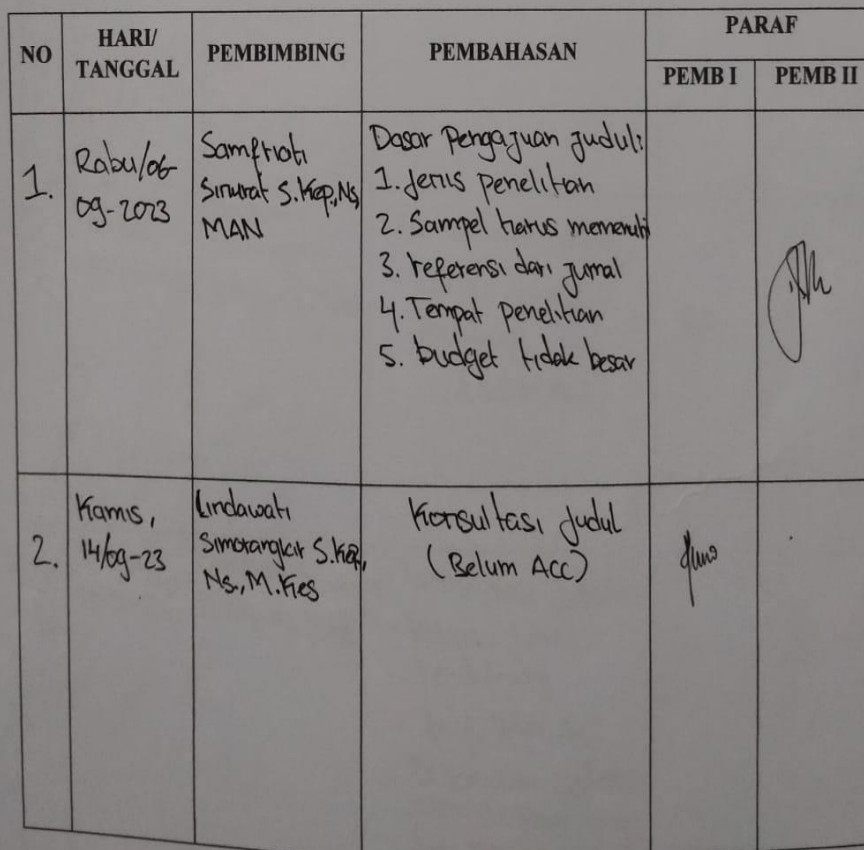 NO
HARI/
TANGGAL
PEMBIMBING
PEMBAHASAN
PARAF
PEMB I
PEMB II
1.
Rabu/06-
09-2023
Samfriati
Sinurat S.Kep.,Ns,
MAN
Dasar Pengajuan Judul:
1. Jenis penelitian
2. Sampel harus memenuhi
3. referensi dari jurnal
4. Tempat penelitian
5. budget tidak besar
2.
Kamis,
14/09-23
Lindawati
Simorangkir S.Kep.,
Ns., M.Kes
Konsultasi Judul
(Belum Acc)